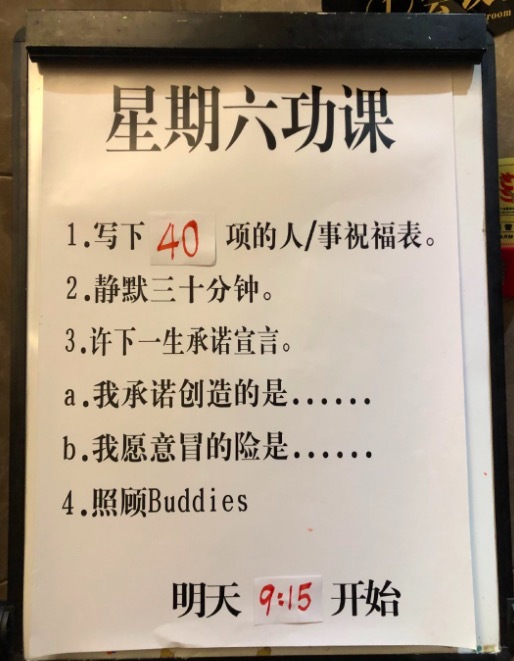 星期六功课
1.写下 40 项的人/事祝福表。
2.静默三十分钟。
3.许下一生承诺宣言。
a.我承诺创造的是......
b.我愿意冒的险是......
4.照顾Buddies
明天 9:15 开始